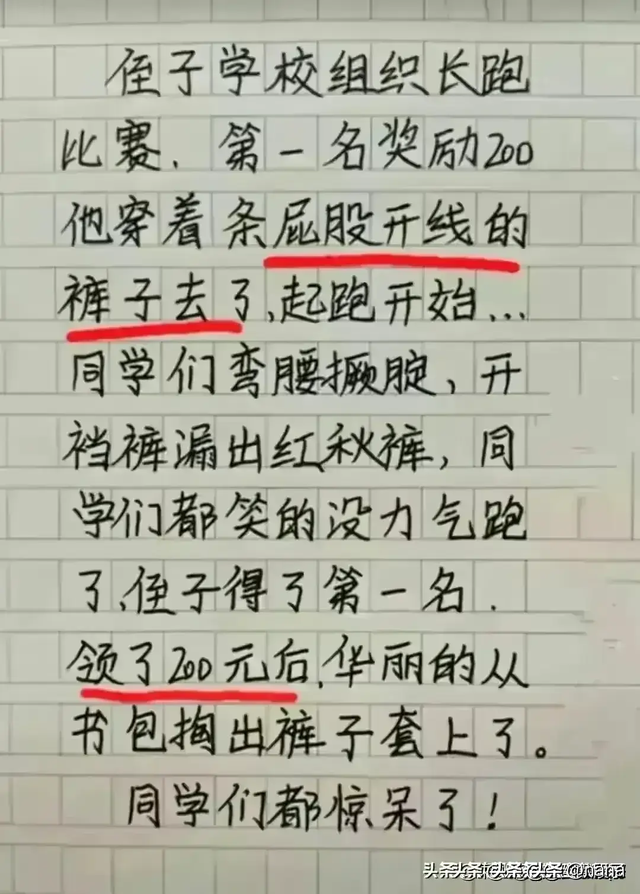 侄子学校组织长跑
比赛、第一名奖励200
他穿着条屁股开线的
裤子去了,起跑开始...
同学们弯腰撅腚,开
裆裤漏出红秋裤,同
学们都笑的没力气跑
了、侄子得了第一名.
领了200元后,华丽的从
书包掏出裤子套上了。
同学们都惊呆了!
头条